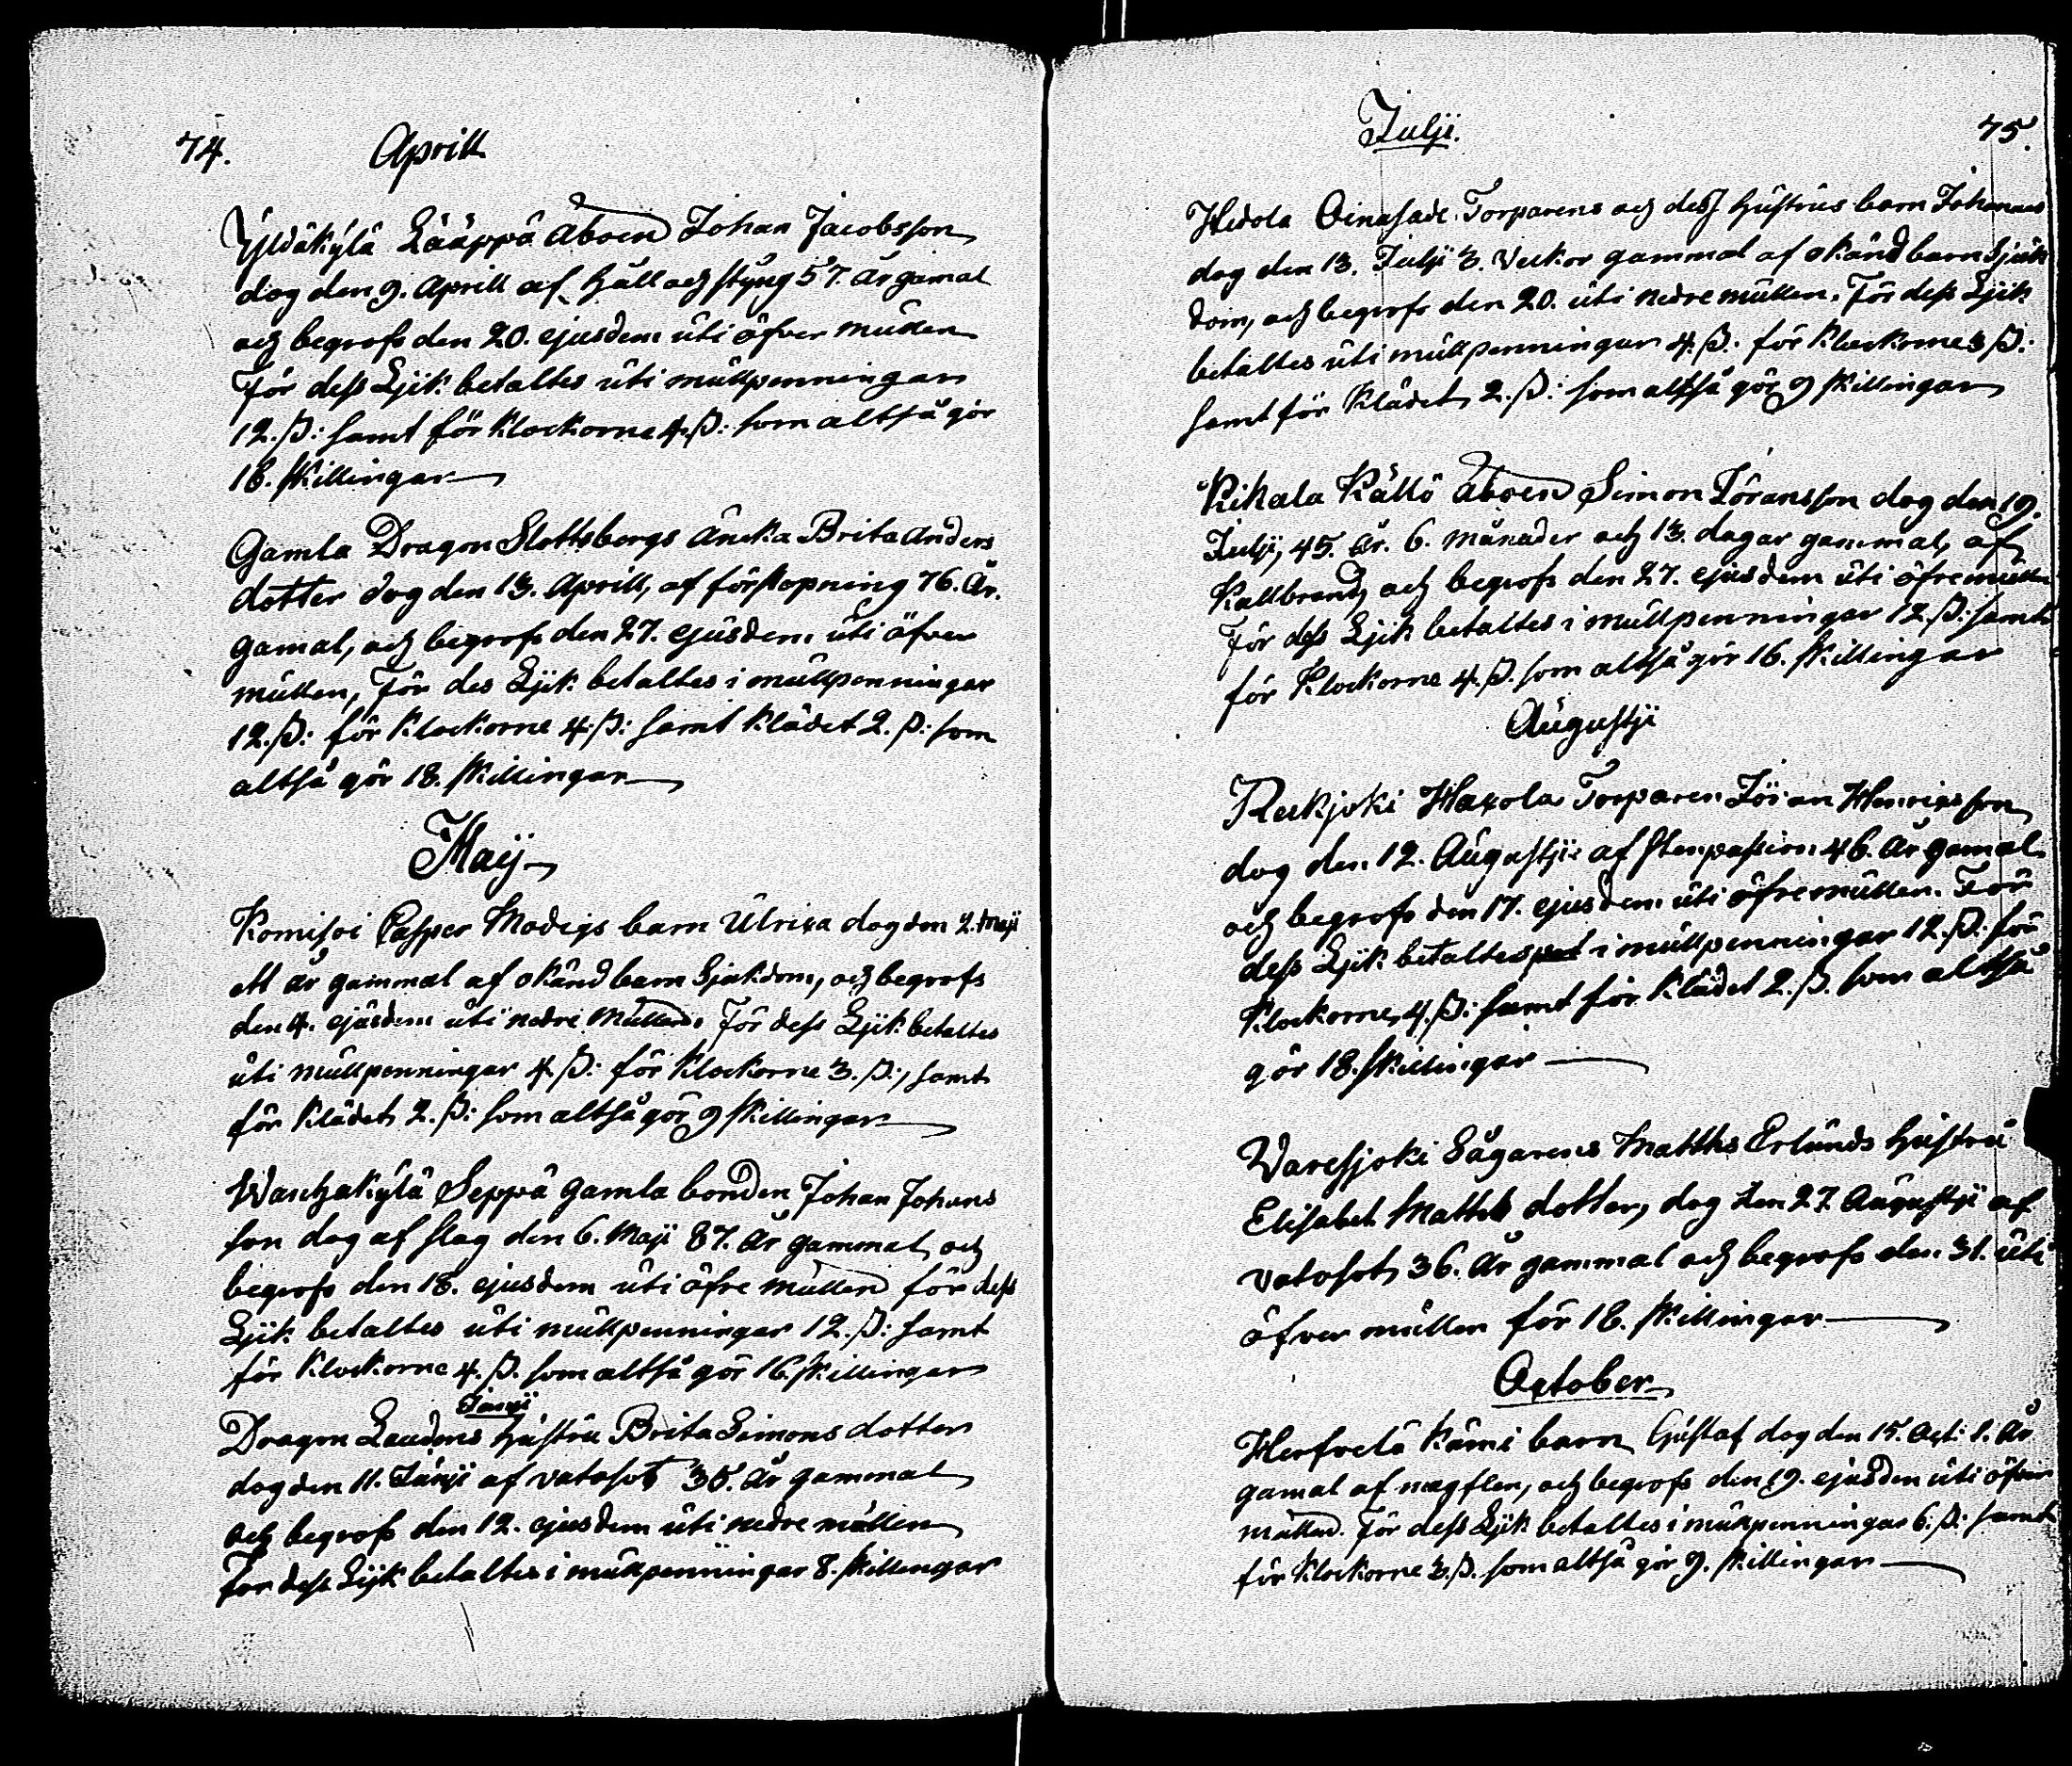 74. Aprill
Yldäkylä Lääppä Åboen Johan Jacobsson
dog den 9. Aprill af håll och styng 57. År gamal
och begrofs den 20. ejusdem uti öfver mullen
För dess Lijk betaltes uti mullpenningar
12. ß: samt för Klockorne 4. ß: som altså gör
18. skillingar
Gamla Dragon Slottsbergs Äncka Brita Anders
dotter dog den 13. Aprill, af förstopning 76. År.
gamal, och begrofs den 27. ejusdem uti öfver
mullen, För des Lijk betaltes i mullpenningar
12. ß: för Klockorne 4. ß: samt Klädet 2. ß: som
altså gör 18. skillingar
Maij
Komisoi Casper Modigs barn Ulrica dog den 2. Maji
ett år gammal af okänd barn Sjukdom, och begrofs
den 4. ejusdem uti nedre Mullen. För dess Lijk betaltes
uti mullpenningar 4. ß: för Klockorne 3. ß:, samt
för Klädet 2. ß: som altså gör 9 skillingar
Wanhakylä Seppä gamla bonden Johan Johans
son dog af slag den 6. Maji 87. År gammal, och
begrofs den 18. ejusdem uti öfre mullen för dess
Lijk betaltes uti mullpenningar 12. ß: samt
för Klockorne 4. ß. som altså gör 16. skillingar
Junii
Dragon hustru Brita Simons dotter
dog den 11. Junii af vatosot 35. År gammal
och begrofs den 12. ejusdem uti nedre mullen
For dess Lijk betaltes i mullpenningar 8. skillingar
Julji. 75.
Hevola Oinasade Torparens och dess hustrus barn Johannes
dog den 13. Julji 3. Veckor gammal af okänd barn Sjuk
dom, och begrofs den 20. uti nedre mullen. För dess Lijk
betaltes uti mullpenningar 4. ß: för Klockorne 3 ß:
samt för Klädet 2. ß: som altså gör 9 skillingar
Rikala Källö Åboen Simon Jöransson dog den 19.
Julji, 45. År. 6. månader och 13. dagar gammal, af
Kallbrand, och begrofs den 27. ejusdem uti öfre mullen
För dess Lijk betaltes i mullpenningar 12. ß: samt
för Klockorne 4. ß. som altså gör 16. skillingar
Augustji
Reckjoki Haxola Torparen Jöran Henricsson
dog den 12. Augustji af Stenpassion 46. År gamal
och begrofs den 17. ejusdem uti öfre mullen. För
dess Lijk betaltes i mullpenningar 12. ß: för
Klockorne, 4. ß: samt för Klädet 2. ß. som altså
gör 18. skillingar
Varesjoki Sågarens Matths Erlunds hustru
Elisabet Matts dotter, dog den 27. Augustji af
vatosot, 36. År gammal och begrofs den. 31. uti
öfver mullen för 18. skillingar
October
Herfvelä Kämi barn Gustaf dog den 15. Oct: 1. År
gamal af magflen, och begrofs den 19. ejusdem uti öfver
mullen. För dess Lijk betaltes i mullpenningar 6. ß: samt
för Klockorne 3. ß. som altså gör 9. skillingar